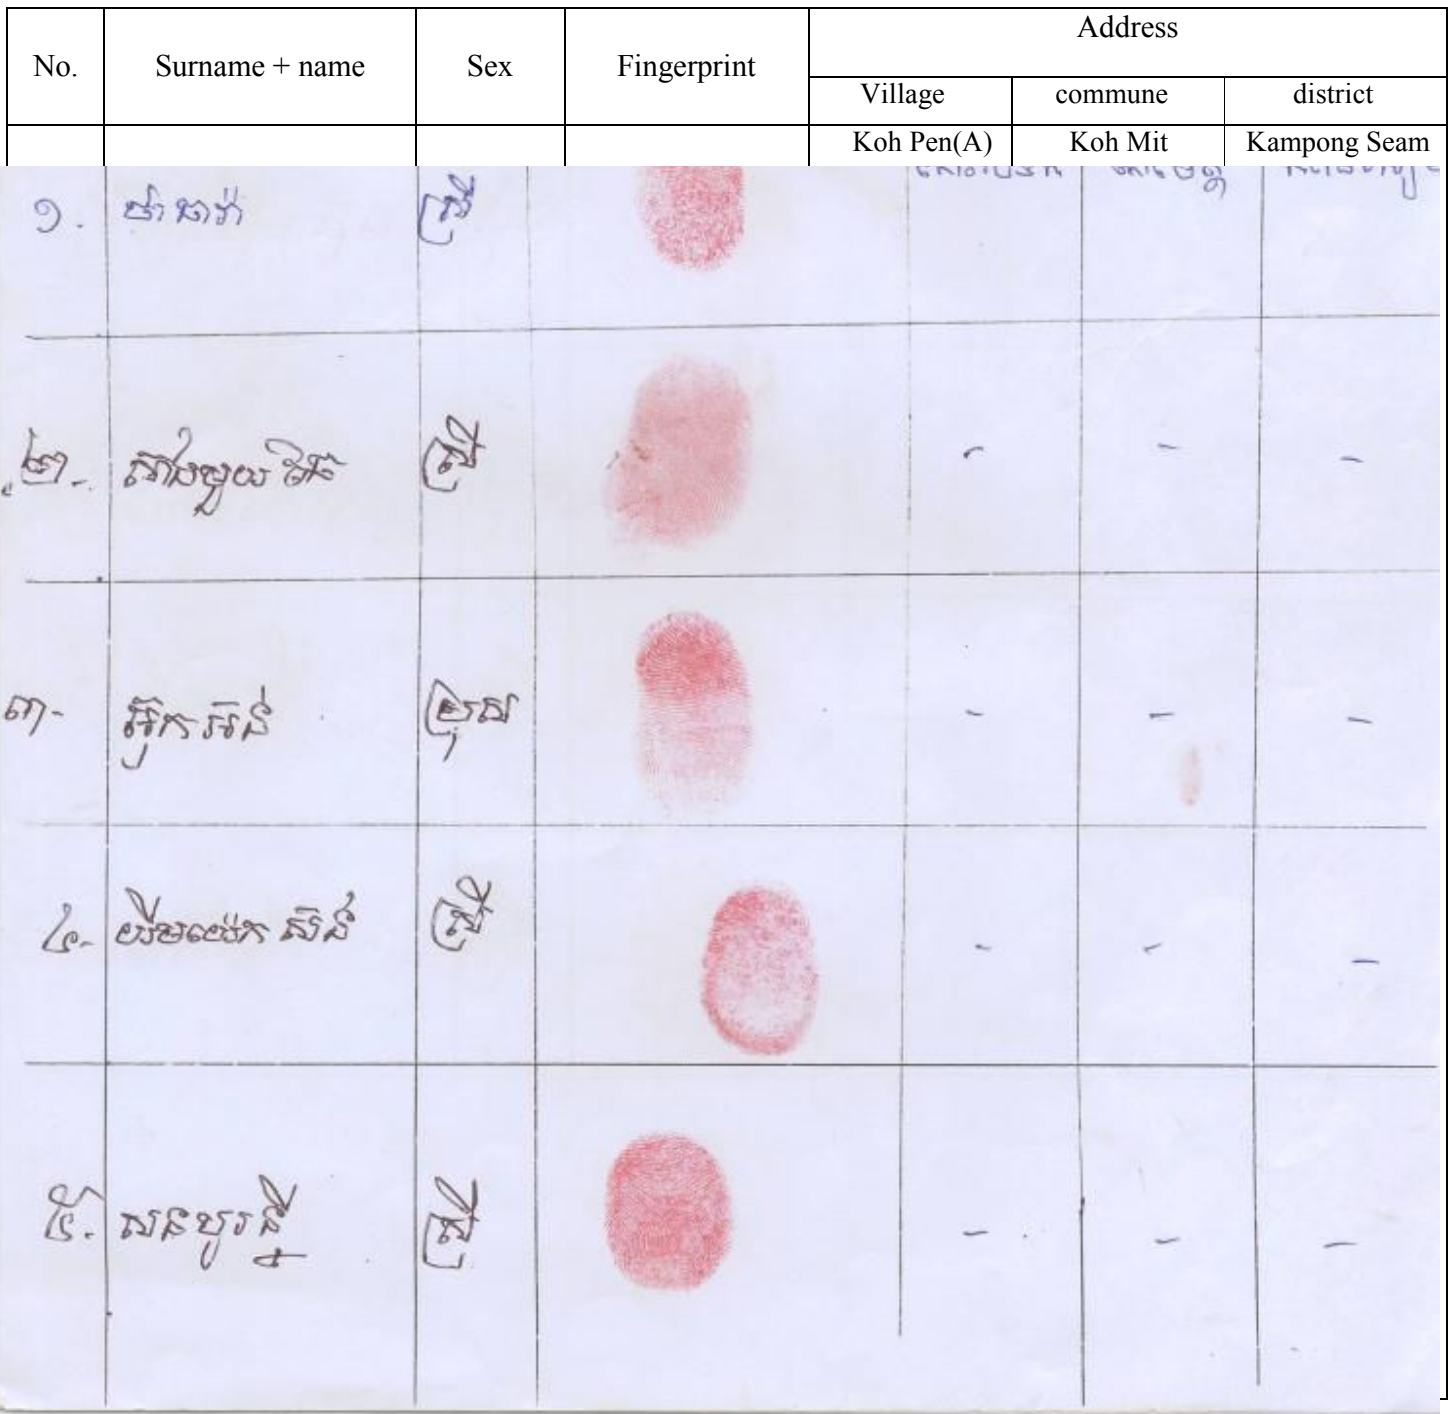 No. Surname + name Sex Fingerprint Address
Village commune district
Koh Pen(A) Koh Mit Kampong Seam
១. ថា ធារ៉ា ស្រី
២. ស្រី - - -
៣- អ៊ុក អ៊ន់ ប្រុស - - -
៤- ស៊ន់ ស្រី - - -
៥. សន បូរន្នី ស្រី - - -